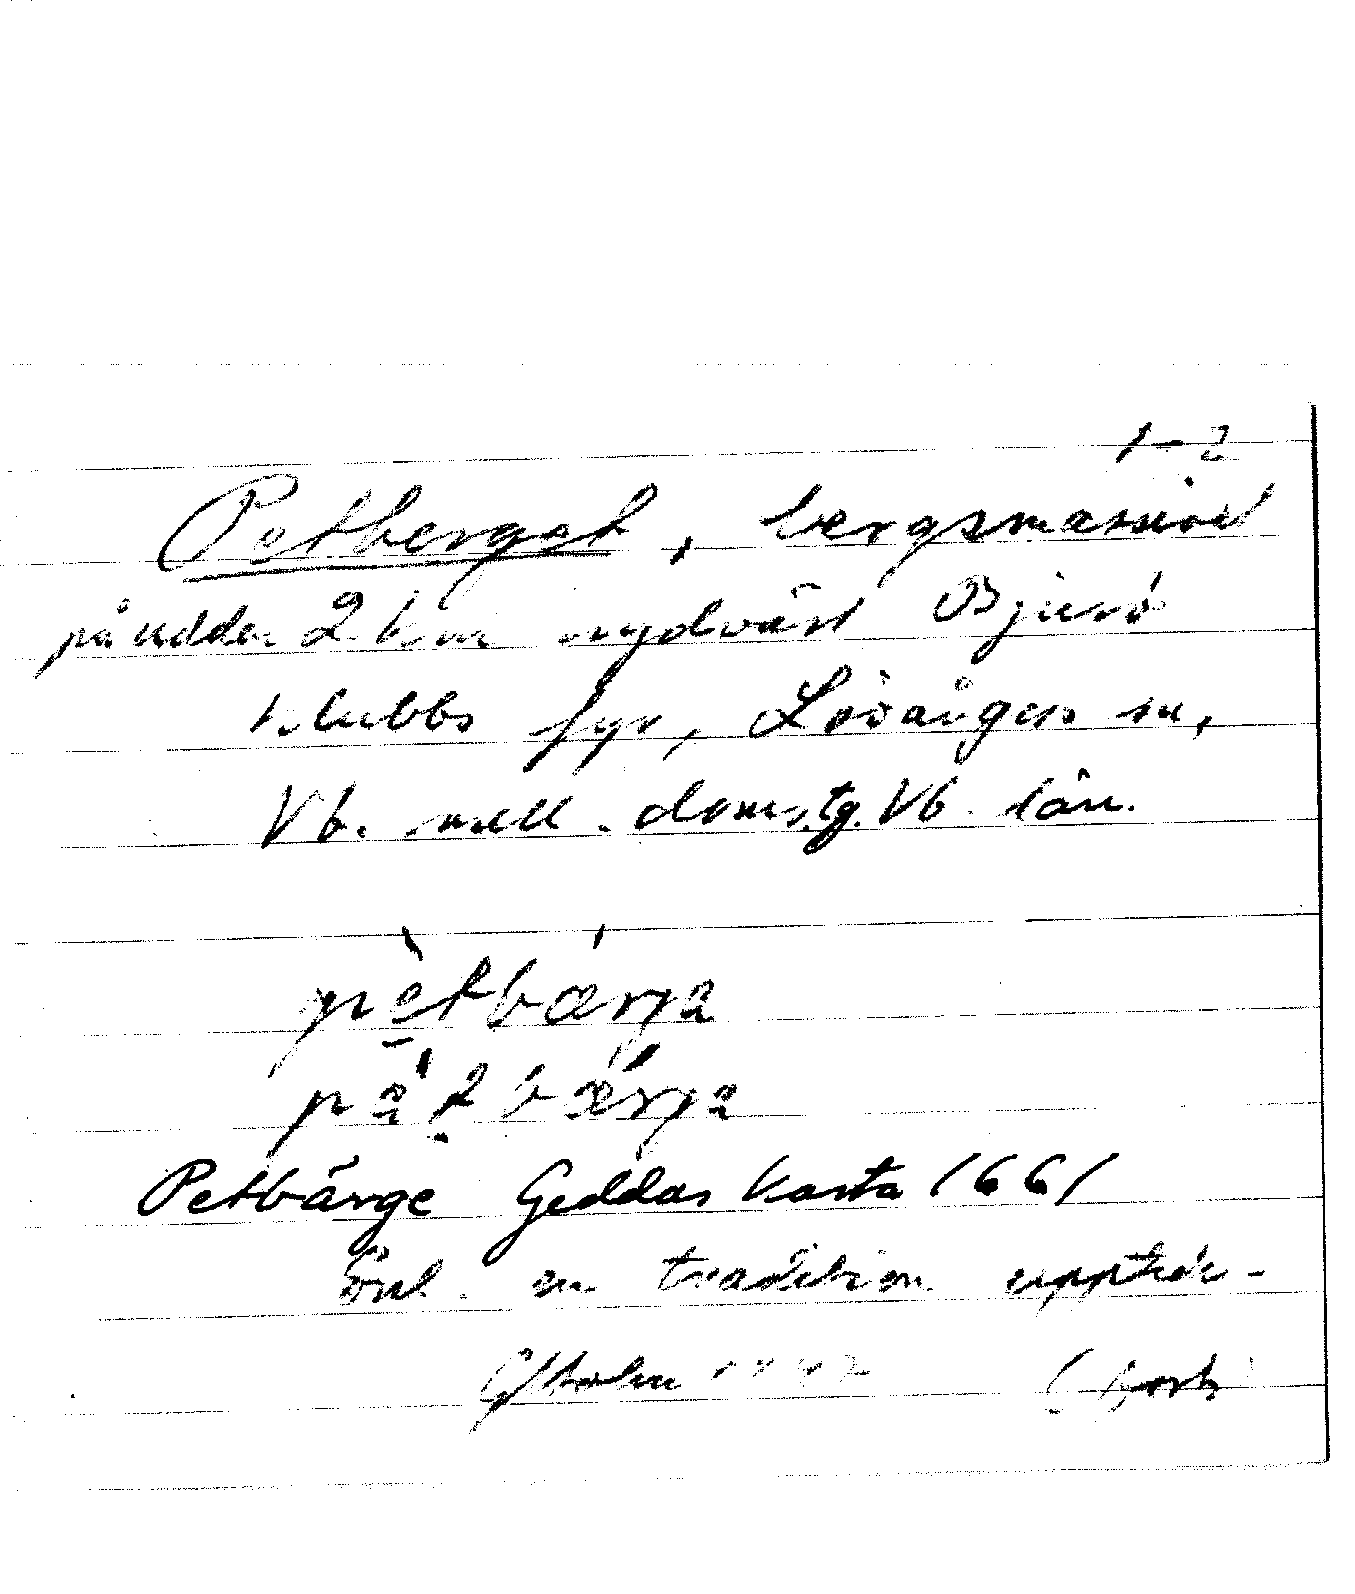 1-2
Petberget, bergsmassivet
på udden 2 km sydväst Bjurö
klubbs fyr, Lövångers sn,
Vb. mell. doms.tg. Vb. län.
pètbærja
Petbärge Geddas karta 1661
Enl. en tradition uppträd-
G Holm 1942 (forts)